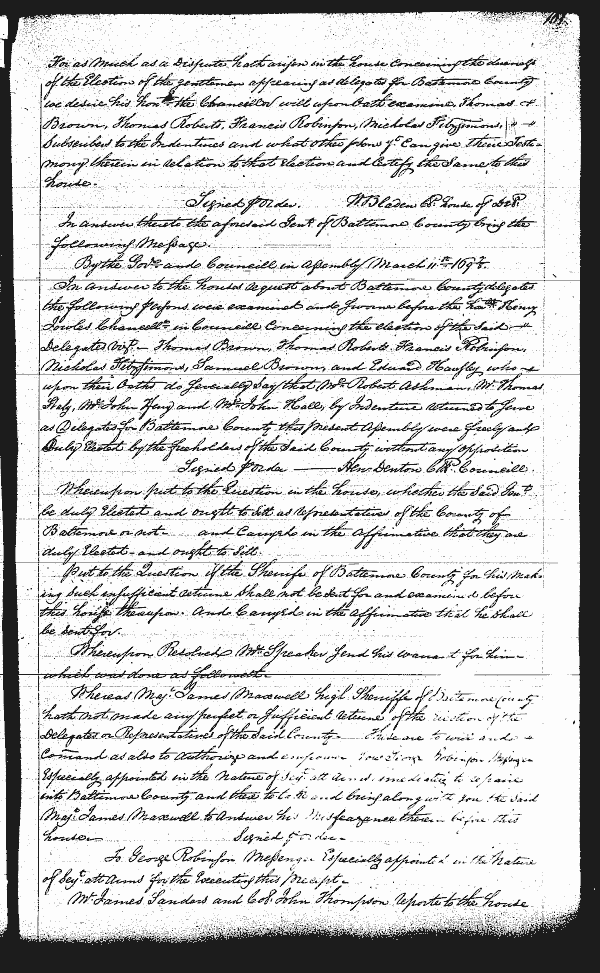 For as much as a Dispute hath arisen in the house Concerning the
of the Election of the Gentlemen appearing as delegates for Baltemore County
we desire his honble the Chancellor will upon Oath examine, Thomas
Brown, Thomas Roberts, Francis Robinson, Nicholas Fitzsimons,
Subscribers to the Indentures and what other psons yt Can give their Testi-
mony therein in relation to that Election and Certify the Same to this
house.
Signed p Order. W Bladen Cl house of Del
In answer thereto the aforesaid Gent of Baltemore County bring the
following Message.
By the Govr and Councill in Assembly March 11th 1697/8
In answer to the houses request about Baltemore County delegates
the following persons were examined and Sworne before the honble Henry
Jowles Chancellr in Councill Concerning the election of the Said
Delegates vizt Thomas Brown, Thomas Roberts, Francis Robinson,
Nicholas Fitzsimons, Samuel Brown, and Edward who
upon their Oaths do Severally Say that Mr Robert Ashman, Mr Thomas
Staly, Mr John and Mr John Hall, by Indenture returned to Serve
as Delegates for Baltemore County this present Assembly were freely and
Duly Elected by the freeholders of the Said County without any opposition
Signed p Order Hen Denton Cl Councill
Whereupon put to the Question in the house, whether the Said Gent
be duly Elected and ought to Sitt as representatives of the County of
Baltemore or not. and Carryed in the affirmative that they are
duly Elected and ought to Sitt.
Put to the Question if the Sheriffe of Baltemore County for his mak-
ing Such insufficient returne Shall not be Sent for and examined before
this house thereupon. And Carryed in the affirmative that he Shall
be Sent for.
Whereupon Resolved Mr Speaker Send his warrant for him
which was done as followeth.
Whereas Majr James Maxwell high Sheriffe of Baltemore County
hath not made any perfect or Sufficient returne of the Election of the
Delegates or Representatives of the Said County. These are to will and
Comand as also to Authorize and empower you George Robinson Messenger
Especially appointed in the Nature of Serjt att Armes to repaire
into Baltimore County and there to and bring along with you the Said
Majr James Maxwell to Answer his Misfeazance therein before this
house. Signed p order
To George Robinson Messenger Especially appointed in the Nature
of Serjt att Arms for the Executing this precept.
Mr James Sanders and Col John Thompson reporte to the house